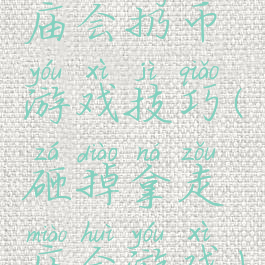 庙会扔币
yóu xì jì qiǎo
游戏技巧(
zá diào ná zǒu
砸掉拿走
miào huì yóu xì
庙会游戏)